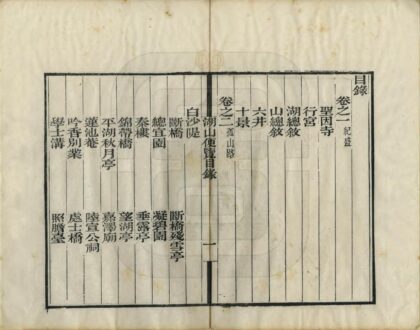 目錄
卷之一 紀盛
聖因寺
行宮
湖總敘
山總敘
六井
十景
卷之二 孤山路
湖山便覽目錄 一
白沙隄
斷橋 斷橋殘雪亭
總宜園 凝碧園
秦樓 垂露亭
錦帶橋 望湖亭
平湖秋月亭 嘉澤廟
蓮池菴 陸宣公祠
吟香別業 處士橋
學士溝 照膽臺